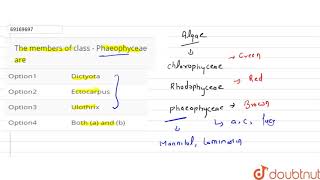 69169697
The members of class - Phaeophyceae
are
Option1 Dictyota
Option2 Ectocarpus
Option3 Ulothrix
Option4 Both (a) and (b)
Algae
chlorophyceae → Green
Rhodophyceae → Red
phaeophyceae → Brown
↳ a, c, fuco
Mannitol, Laminarin
doubtnut